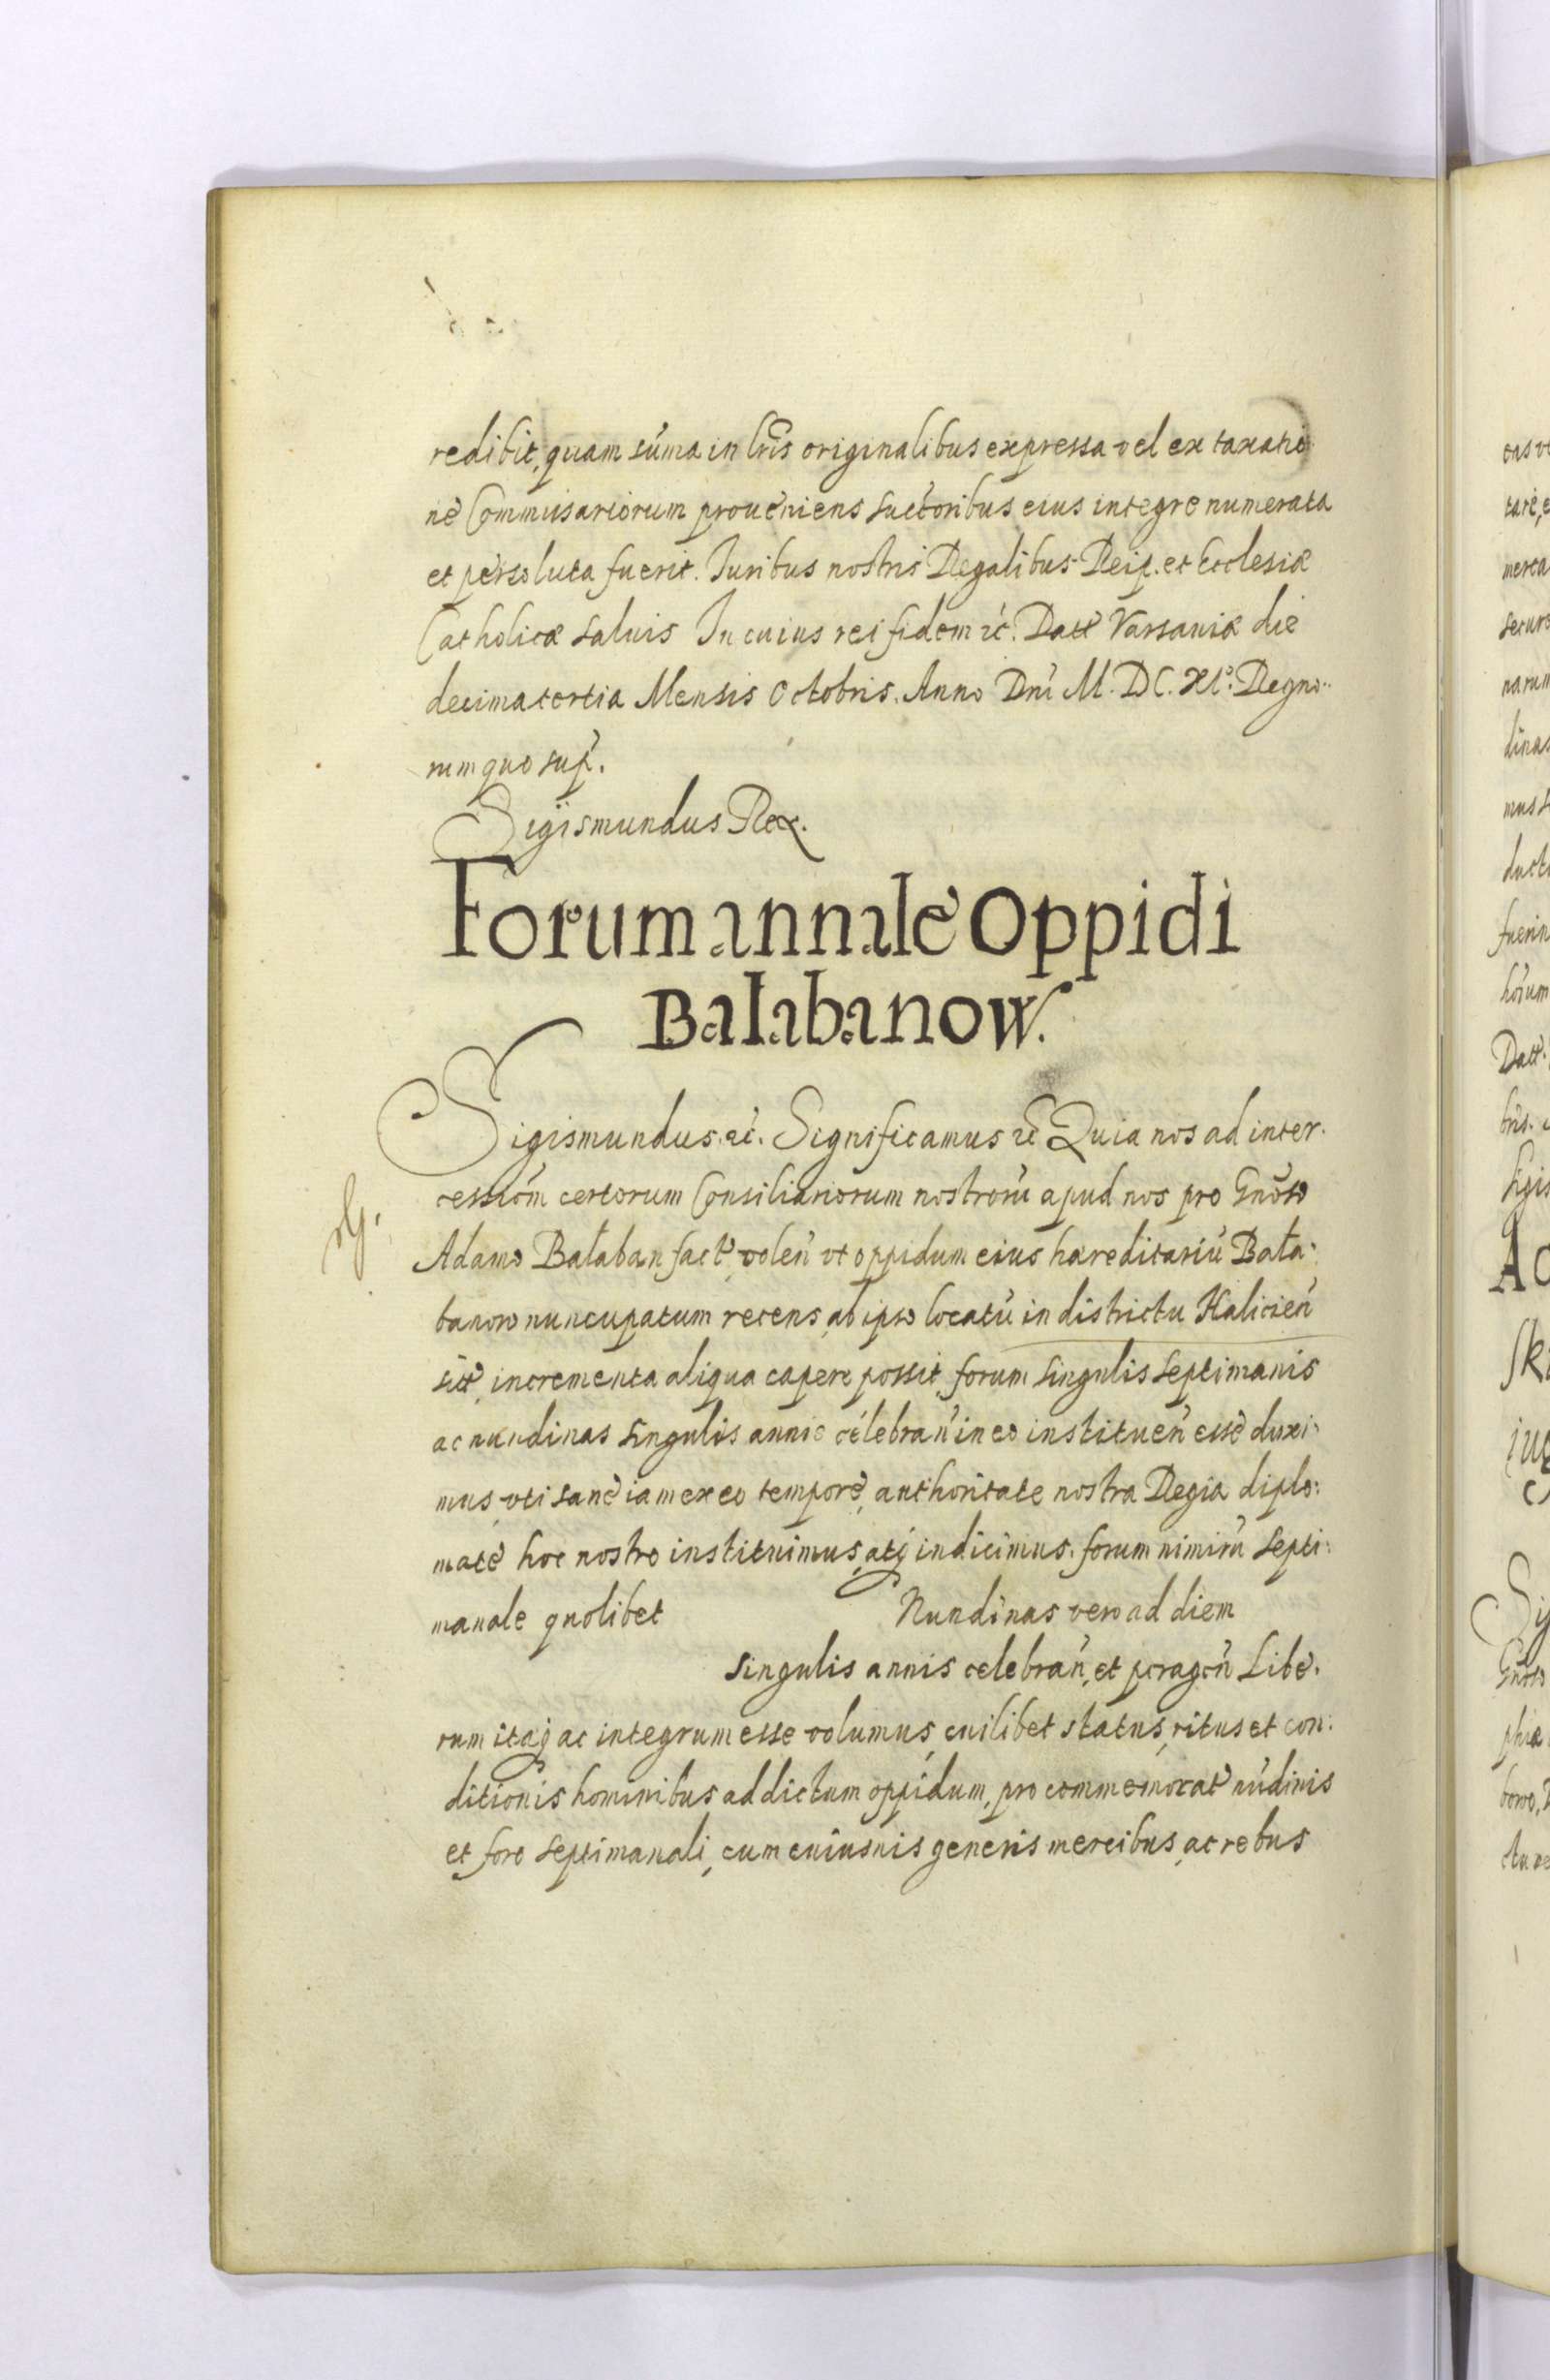 redibit, quam sum̃a in lr̃is originalibus expressa vel ex taxatio
ne Commissariorum proueniens suctoribus eius integre numerata
et persoluta fuerit. Iuribus nostris Regalibus Reip. et Ecclesiæ
Catholicæ saluis In cuius rei fidem ꝛc. Datt Varsauiæ die
decima tertia Mensis Octobris. Anno Dni M. DC. XIº. Regno
rum quo sup.
Sigismundus Rex.
Forum annale Oppidi
Balabanow.
Sigismundus ꝛc. Significamus ꝛc Quia nos ad inter.
cessiom certorum Consiliariorum nostrorū apud nos pro Gnõso
Adamo Bałaban fact, volen̄ vt oppidum eius hæreditariū Bała:
banow nuncupatum recens ab ipso locatū in districtu Halicien̄
sit, incrementa aliqua capere possit, forum singulis septimanis
ac nundinas singulis annis celebran̄ in eo instituen̄ esse duxi
mus, vti sane iam ex eo tempore, authoritate nostra Regia diplo:
mate hoc nostro instituimus, atq indicimus. forum nimirū septi:
manale quolibet Nundinas vero ad diem
singulis annis celebran̄, et peragen̄ Libe.
rum itaq ac integrum esse volumus, cuilibet status, ritus et con:
ditionis hominibus ad dictum oppidum, pro commemorat nūdinis
et foro septimanali, cum cuiusuis generis mercibus, ac rebus